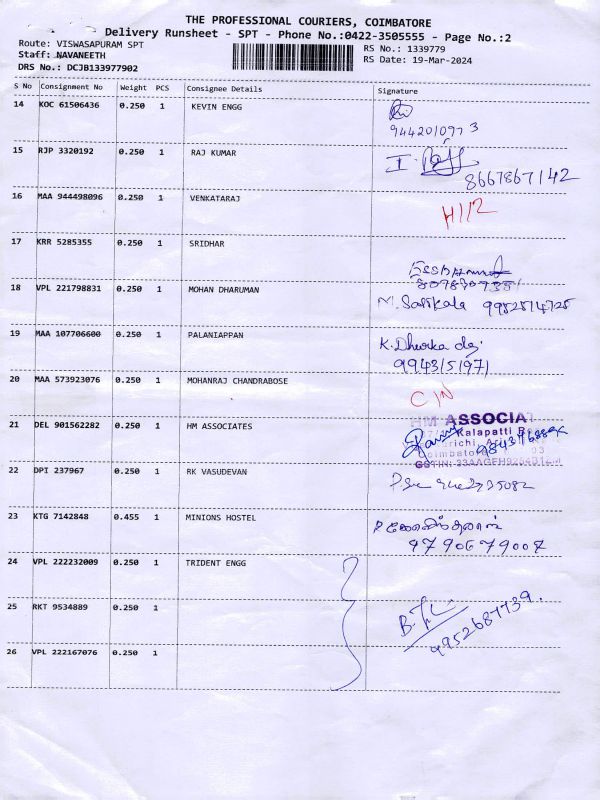 THE PROFESSIONAL COURIERS, COIMBATORE
Delivery Runsheet - SPT - Phone No.:0422-3505555 - Page No.:2
Route: VISWASAPURAM SPT
RS No.: 1339779
Staff: NAVANEETH
RS Date: 19-Mar-2024
DRS No.: DCJB133977902
S No Consignment No Weight PCS Consignee Details Signature
14 KOC 61506436 0.250 1 KEVIN ENGG
9442010973
15 RJP 3320192 0.250 1 RAJ KUMAR
8667867142
16 MAA 944498096 0.250 1 VENKATARAJ H/12
17 KRR 5285355 0.250 1 SRIDHAR
18 VPL 221798831 0.250 1 MOHAN DHARUMAN
M. Sasikala 9952514725
19 MAA 107706600 0.250 1 PALANIAPPAN K. Dhurka
9943151971
20 MAA 573923076 0.250 1 MOHANRAJ CHANDRABOSE C/N
21 DEL 901562282 0.250 1 HM ASSOCIATES HM ASSOCIAT
Kalapatti
22 DPI 237967 0.250 1 RK VASUDEVAN
23 KTG 7142848 0.455 1 MINIONS HOSTEL
9790679007
24 VPL 222232009 0.250 1 TRIDENT ENGG
25 RKT 9534889 0.250 1
9952687739.
26 VPL 222167076 0.250 1